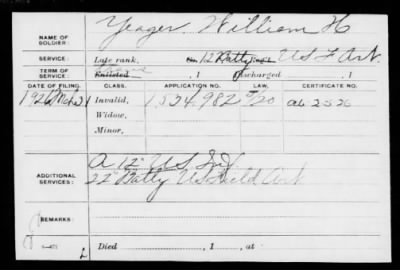 NAME OF SOLDIER: Yeager, William H
SERVICE: Late rank, No. 12 Batty Reg't US F Art.
TERM OF SERVICE: Enlisted , 1 Discharged , 1
DATE OF FILING. CLASS. APPLICATION NO. LAW. CERTIFICATE NO.
1926 Mch 31 Invalid, 1,534,982
Widow,
Minor,
ADDITIONAL SERVICES: A 12" US Inf
22" Batty US Field Art
REMARKS:
Died , 1 , at